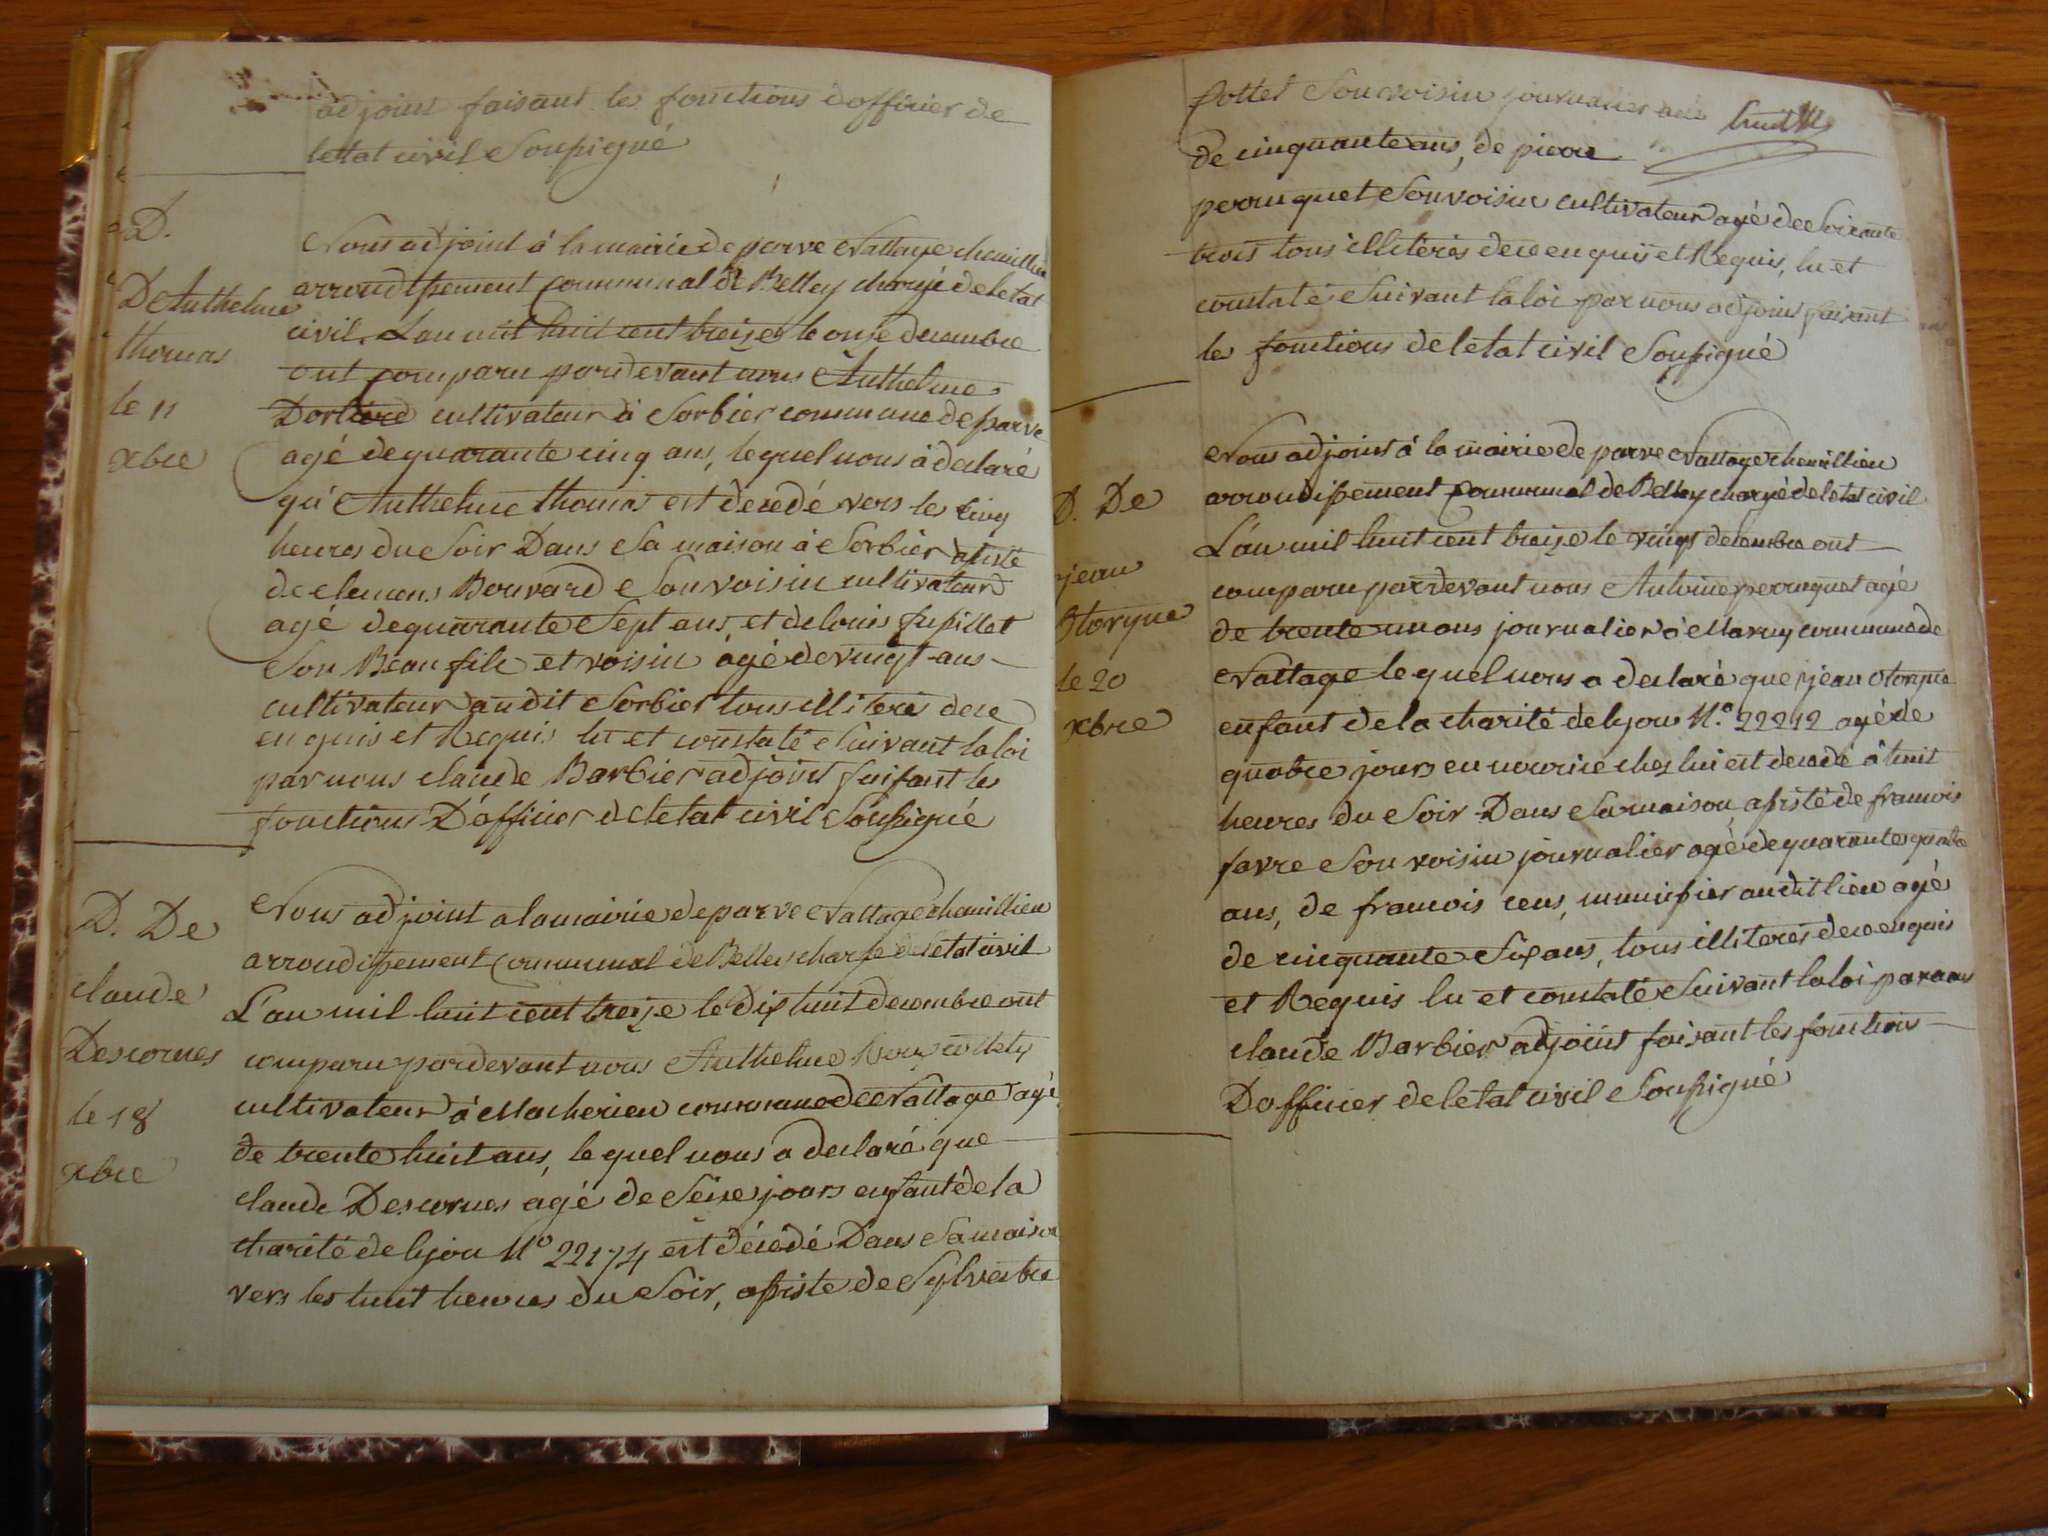 adjoint faisant les fonctions dofficier de
letat civil Soussigné
D.
D'Anthelme
thomas
le 11
xbre
Nous adjoint à la mairie de parve Nattage chemillieu
arrondissement communal de Belley chargé de letat
civil. Lan mil huit cent treize le onze decembre
ont comparu pardevant nous Anthelme
cultivateur à Sorbier commune de parve
agé de quarante cinq ans, lequel nous à declaré
qu'Anthelme thomas est decedé vers les cinq
heures du Soir Dans Sa maison à Sorbier assisté
de clemens Bouvard Son voisin cultivateur
agé de quarante Sept ans, et de louis
Son Beau fils et voisin agé de vingt ans
cultivateur audit Sorbier tous illiteres de ce
enquis et Requis lu et constaté Suivant la loi
par nous claude Barbier adjoint faisant les
fonctions D'officier de letat civil Soussigné
D. De
claude
Descornes
le 18
xbre
Nous adjoint a la mairie de parve Nattage chemillieu
arrondissement communal de Belley chargé de letat civil
L'an mil huit cent treize le dix huit decembre ont
comparu pardevant nous Anthelme
cultivateur à commune de Nattage agé
de trente huit ans, lequel nous a declaré que
claude Descornes agé de Seize jours enfant de la
charité de lyon N° 22174 est décédé Dans Sa maison
vers les huit heures du Soir, assisté de Sylvestre
pottet Son voisin journalier agé
de cinquante ans, de pierre
perruquet Son voisin cultivateur agé de Soixante
trois tous illitérés de ce enquis et Requis, lu et
constaté Suivant la loi par nous adjoint faisant
les fonctions de letat civil Soussigné
D. De
jean
Otorque
le 20
xbre
Nous adjoint à la mairie de parve Nattage chemillieu
arrondissement communal de Belley chargé de letat civil
L'an mil huit cent treize le vingt decembre ont
comparu pardevant nous Antoine perruquet agé
de trente un ans journalier à commune de
Nattage lequel nous a declaré que jean Otorque
enfant de la charité de lyon N.° 22212 agé de
quatre jours en nourrice chez lui est decedé à huit
heures du Soir Dans Sa maison, assisté de francois
favre Son voisin journalier agé de quarante quatre
ans, de francois cens, menuisier audit lieu agé
de cinquante Six ans, tous illiteres de ce enquis
et Requis lu et constaté Suivant la loi par nous
claude Barbier adjoint faisant les fonctions
Dofficier de letat civil Soussigné